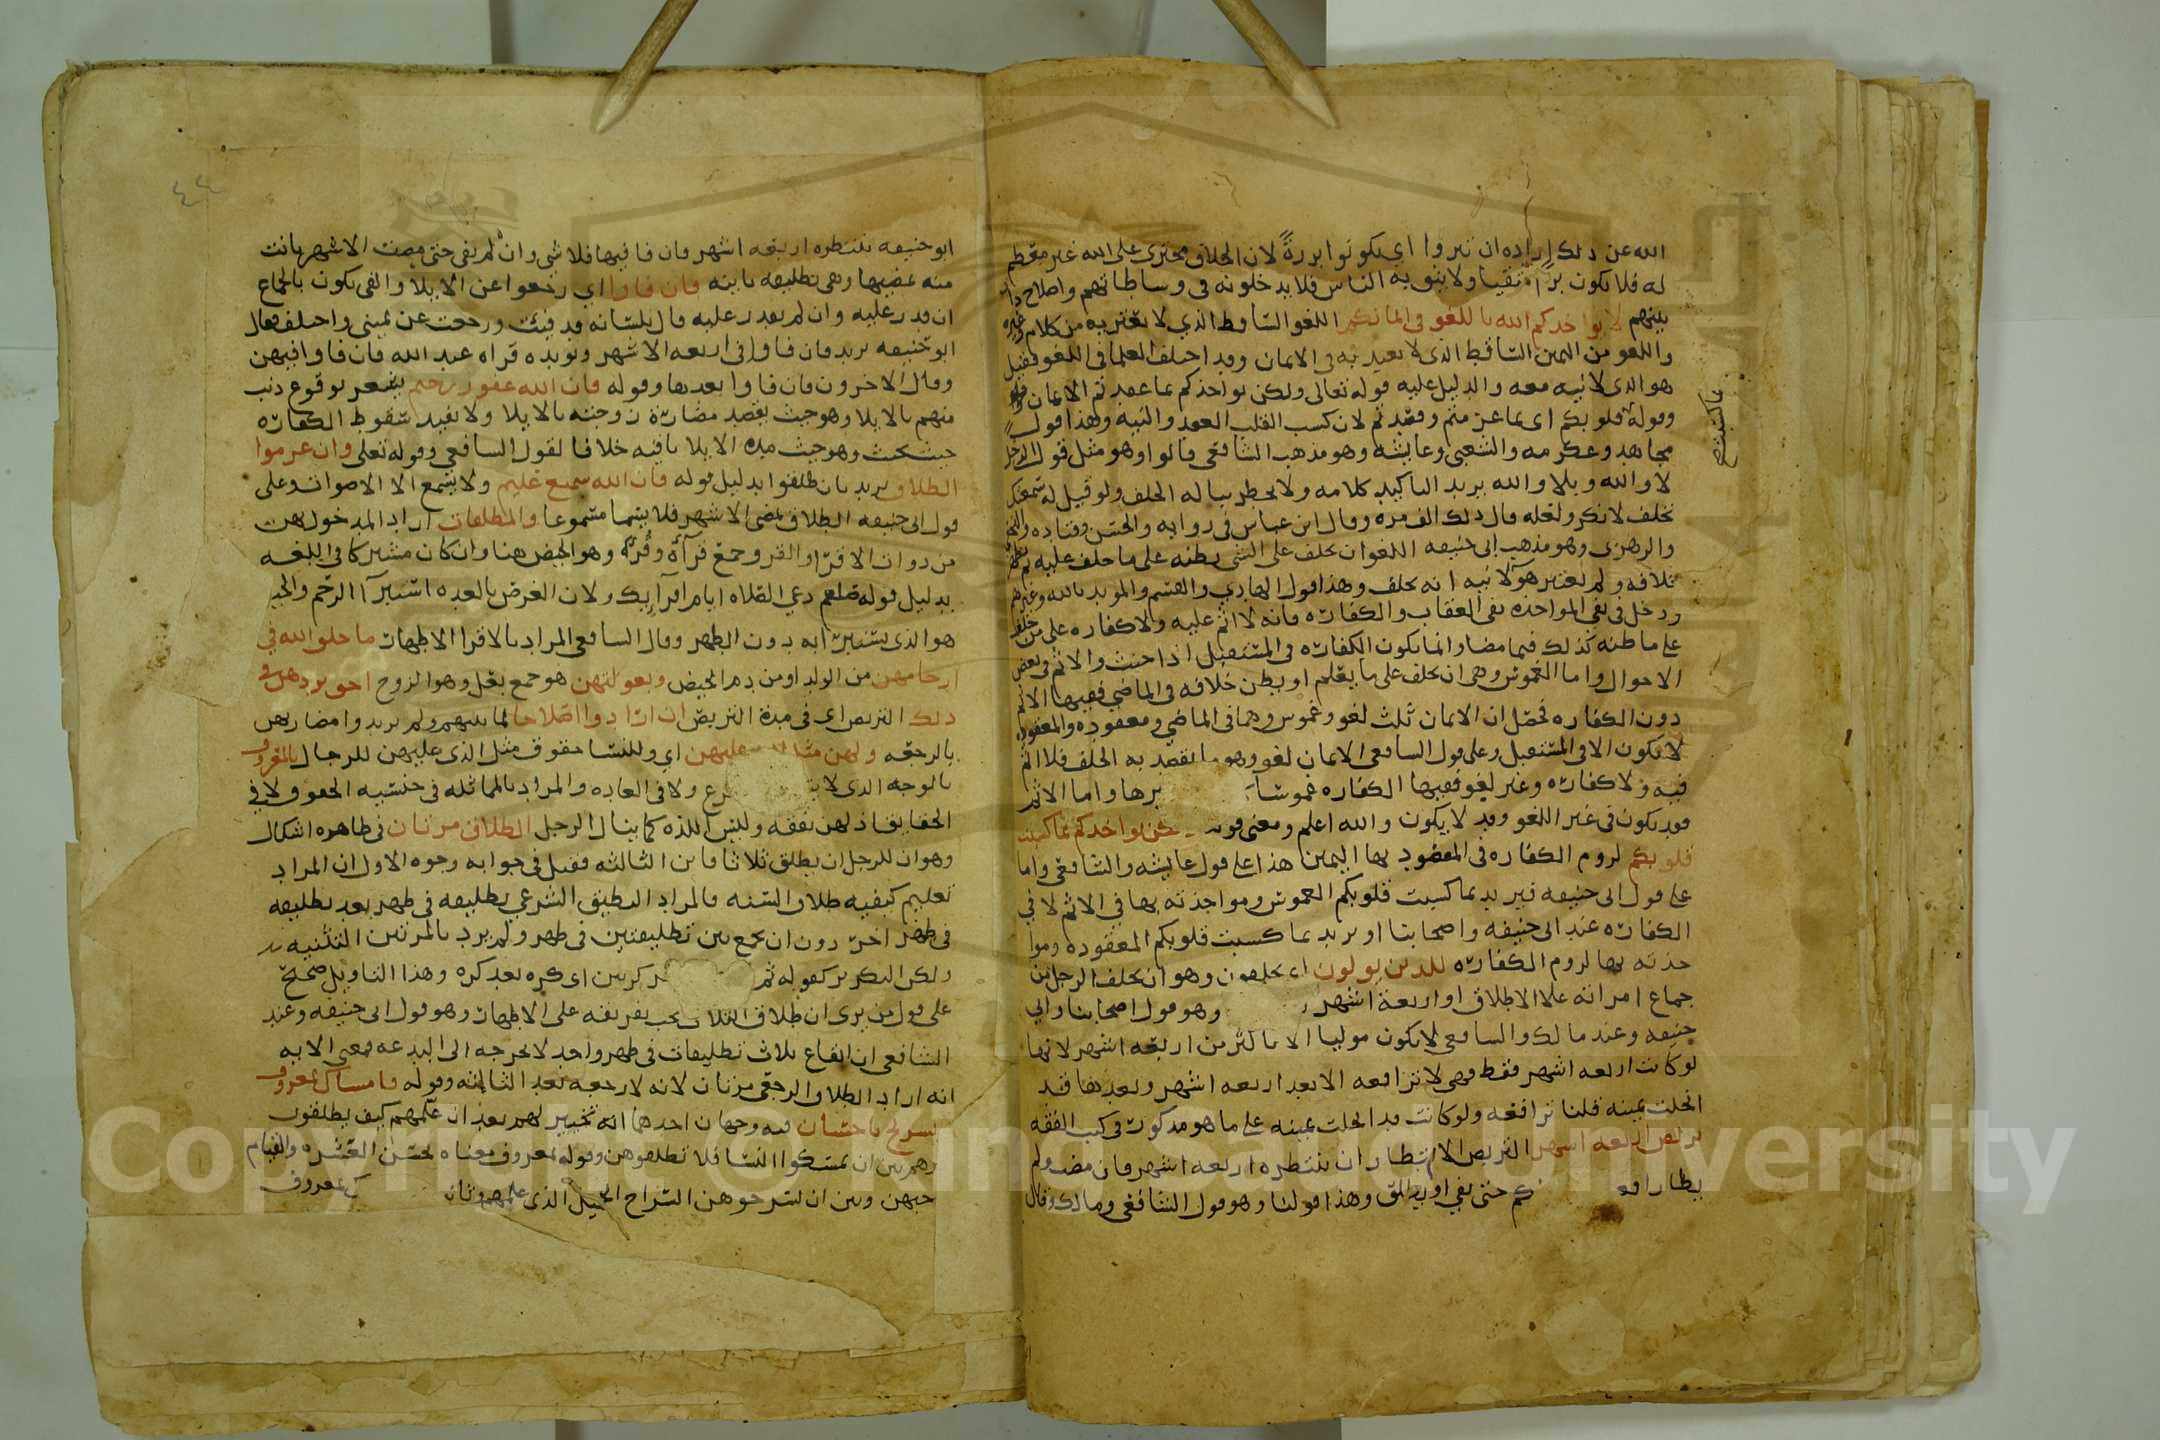 الله عن ذلك إراده ان تبروا اي تكونوا ابررةً لان الحلاف مجترى على الله غير معظم
له فلا يكون براً تقيا ولا يثق به الناس فلا يدخلونه في وساطاتهم واصلاح ذات
بينهم لا يواخذكم الله باللغو في ايمانكم اللغو الساقط الذي لا يعتد به من كلام وغيره
واللغو من اليمين الساقط الذي لا يعتد به في الايمان وقد اختلف العلما في اللغو فقيل
هو الذي لا نيه معه والدليل عليه قوله تعالى ولكن يواخذكم بما عقدتم الايمان
وقوله قلوبكم اي بما عزمتم وقصدتم لان كسب القلب العمد والنيه وهذا قول
مجاهد وعكرمه والشعبي وعايشه وهو مذهب الشافعي قالوا وهو مثل قول الرجل
لا والله وبلا والله يريد تاكيد كلامه ولا يخطر بباله الحلف ولو قيل له سمعتك
تحلف لانكر ولعله قال ذلك الف مره وقال ابن عباس في روايه والحسن وقتاده
والزهري وهو مذهب ابي حنيفه اللغو ان يحلف على الشي يظنه على ما حلف عليه ثم يظهر
خلافه ولم يعتبر هولا نيه انه يحلف وهذا قول الهادي والقسم والمويد بالله وغيرهم
ودخل في نفي المواخذه نفي العقاب والكفاره فانه لا اثم عليه ولا كفاره على من حلف
على ما ظنه كذلك فيما مضا وانما تكون الكفاره في المستقبل اذا حنث والاثم في بعض
الاحوال واما الغموس وهي ان يحلف على ما يعلم او يظن خلافه في الماضي ففيها الاثم
دون الكفاره فحصل ان الايمان ثلث لغو وغموس وهما في الماضي ومعقوده والمعقوده
لا تكون الا في المستقبل وعلى قول الشافعي الايمان لغو وهو ما لم يقصد به الحلف فلا اثم
فيه ولا كفاره وغير لغو ففيها الكفاره غموسا برها واما الاثم
فقد يكون في غير اللغو وقد لا يكون والله اعلم ومعنى قوله يواخذكم بما كسبت
قلوبكم لزوم الكفاره في المقصود بها اليمين هذا على قول عايشه والشافعي واما
على قول ابي حنيفه فيريد بما كسبت قلوبكم الغموس ومواخذته بها في الاثم لا في
الكفاره عند ابي حنيفه واصحابنا او يريد بما كسبت قلوبكم المعقوده وموا
خذته بها لزوم الكفاره للذين يولون اي يحلفون وهو ان يحلف الرجل من
جماع امراته على الاطلاق او اربعة اشهر وهو قول اصحابنا وابي
حنيفه وعند مالك والشافعي لا يكون موليا الا باكثر من اربعه اشهر لانها
لو كانت اربعه اشهر فقط فهي لا ترافعه الا بعد اربعه اشهر وبعدها قد
انحلت يمينه قلنا ترافعه ولو كانت قد انحلت يمينه على ما هو مذكور في كتب الفقه
تربص اربعه اشهر التربص الانتظار ان تنتظره اربعه اشهر فان مضت ولم
يطا رافعته حتى يفي او يطلق وهذا قولنا وهو قول الشافعي ومالك وقال
بما كسبتم
٤٤
ابو حنيفه تنتظره اربعه اشهر فان فا فيها فلا شي وان لم يفي حتى مضت الاشهر بانت
منه بمضيها وهي تطليقه باينه فان فاوا اي رجعوا عن الايلا والفي يكون بالجماع
ان قدر عليه وان لم يقدر عليه قال بلسانه قد فيئت ورجعت عن يميني واختلف فقال
ابو حنيفه يريد فان فاوا في اربعه الاشهر ويويده قراه عبد الله فان فاوا فيهن
وقال الاخرون فان فاوا بعدها وقوله فان الله غفور رحيم يشعر بوقوع ذنب
منهم بالايلا وهو حيث يقصد مضارة زوجته بالايلا ولا يفيد سقوط الكفاره
حيث يحنث وهو حيث مده الايلا باقيه خلافا لقول الشافعي وقوله تعلى وان عزموا
الطلاق يريد بان طلقوا بدليل قوله فان الله سميع عليم ولا يسمع الا الاصوات وعلى
قول ابي حنيفه الطلاق بمضي الاشهر فلا يتم مسموعا والمطلقات اراد المدخول بهن
من ذوات الاقرا والقرو جمع قرأه وقُره وهو الحيض هنا وان كان مشتركا في اللغه
بدليل قوله صلعم دعي الصلاه ايام اقرايك ولان الغرض بالعده استبرآ الرحم والحيض
هو الذي يستبرى به دون الطهر وقال الشافعي المراد بالاقرا الاطهار ما خلق الله في
ارحامهن من الولد او من دم الحيض وبعولتهن هو جمع بعل وهو الزوج احق بردهن في
ذلك التربص اي في مدة التربص ان ارادوا اصلاحا لما بينهم ولم يريدوا مضاربهن
بالرجعه ولهن مثل عليهن اي وللنسا حقوق مثل الذي عليهن للرجال بالمعروف
بالوجه الذي لا ولا في العاده والمراد بالمماثله في جنسيه الحقوق لا في
الحقايق اذ لهن نفقه وليس اللذه كما ينال الرجل الطلاق مرتان في ظاهره اشكال
وهو ان للرجل ان يطلق ثلاثا فاين الثالثه فقيل في جوابه وجوه الاول ان المراد
تعليم كيفيه طلاق السنه فالمراد التطليق الشرعي تطليقه في طهر بعد تطليقه
في طهر اخر دون ان يجمع بين تطليقتين في طهر ولم يرد بالمرتين التثنيه
ولكن التكرير كقوله ثم كرتين اي كره بعد كره وهذا التاويل صحيح
على قول من يرى ان طلاق الثلاث يجب تفريقه على الاطهار وهو قول ابي حنيفه وعند
الشافعي ان ايقاع ثلاث تطليقات في طهر واحد لا يخرجه الى البدعه فمعنى الايه
انه اراد الطلاق الرجعي مرتان لانه لا رجعه بعد الثالثه وقوله فامساك بمعروف
تسريح باحسان فيه وجهان احدهما انه تخيير لهم بعد ان علمهم كيف يطلقون
وهم بين ان يمسكوا النسا فلا تطلقوهن وقوله بمعروف معناه بحسن العشره والقيام
حبهن وبين ان تسرحوهن السراح الجميل الذي علمهم بمعروف
Copyright © King Saud University